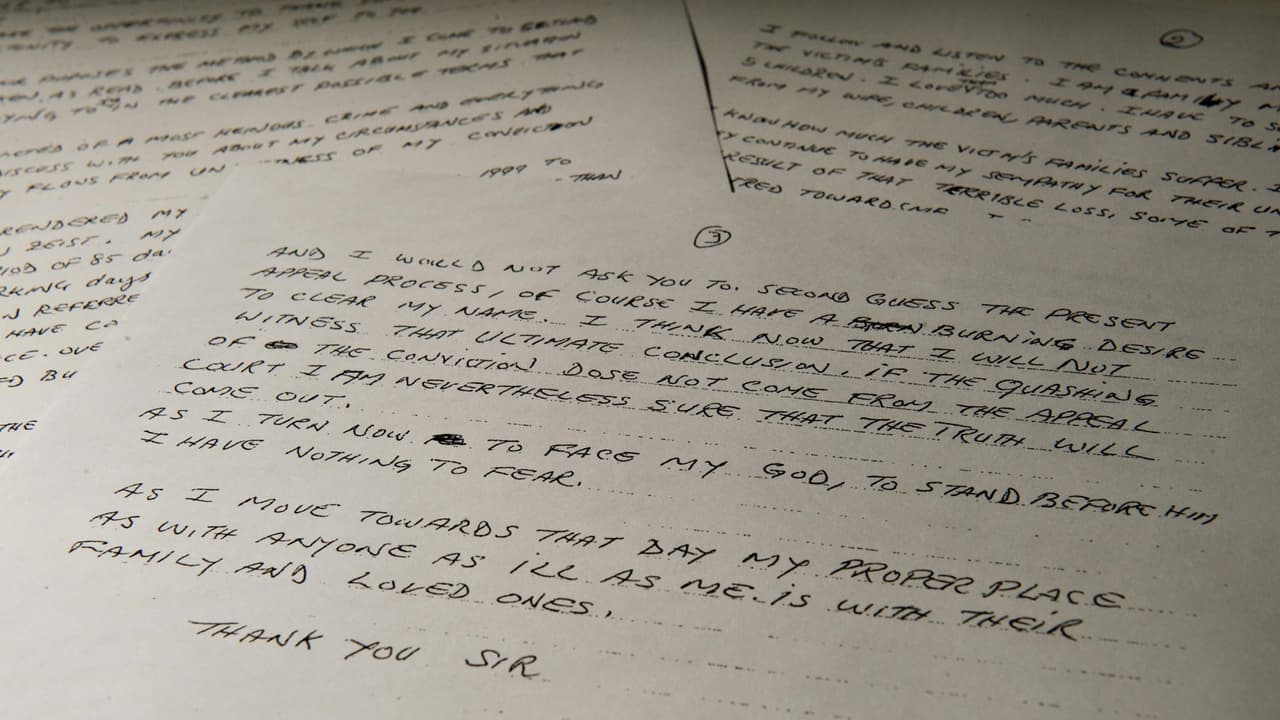 THE OPPORTUNITY TO THANK
TO EXPRESS MY SELF TO YOU
PURPOSES THE METHOD BY WHICH I COME TO
AS READ. BEFORE I TALK ABOUT MY SITUATION
TO IN THE CLEAREST POSSIBLE TERMS THAT
OF A MOST HEINOUS CRIME AND EVERYTHING
WITH YOU ABOUT MY CIRCUMSTANCES AND
FLOWS FROM OF MY CONVICTION
1999 TO
THAN
RENDERED MY
ZEIST. MY
OF 85 da
days
REFERRE
HAVE CO
THE
②
I FOLLOW AND LISTEN TO THE COMMENTS
THE VICTIMS FAMILIES. I AM A FAMILY
5 CHILDREN. I LOVE THEM TOO MUCH. I HAVE TO
FROM MY WIFE, CHILDREN, PARENTS AND
KNOW HOW MUCH THE VICTIM'S FAMILIES SUFFER.
CONTINUE TO HAVE MY SEMPATHY FOR THEIR
RESULT OF THAT TERRIBLE LOSS. SOME OF
TOWARDS ME
③
AND I WOULD NOT ASK YOU TO. SECOND GUESS THE PRESENT
APPEAL PROCESS, OF COURSE I HAVE A BURNING DESIRE
TO CLEAR MY NAME. I THINK NOW THAT I WILL NOT
WITNESS THAT ULTIMATE CONCLUSION. IF THE QUASHING
OF THE CONVICTION DOSE NOT COME FROM THE APPEAL
COURT I AM NEVERTHELESS SURE THAT THE TRUTH WILL
COME OUT.
AS I TURN NOW TO FACE MY GOD, TO STAND BEFORE HIM
I HAVE NOTHING TO FEAR.
AS I MOVE TOWARDS THAT DAY MY PROPER PLACE
AS WITH ANYONE AS ILL AS ME. IS WITH THEIR
FAMILY AND LOVED ONES.
THANK YOU SIR